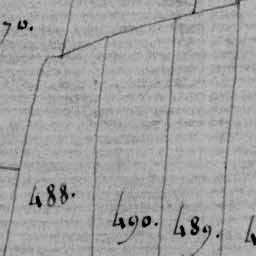 70.
488.
490. 489. 4